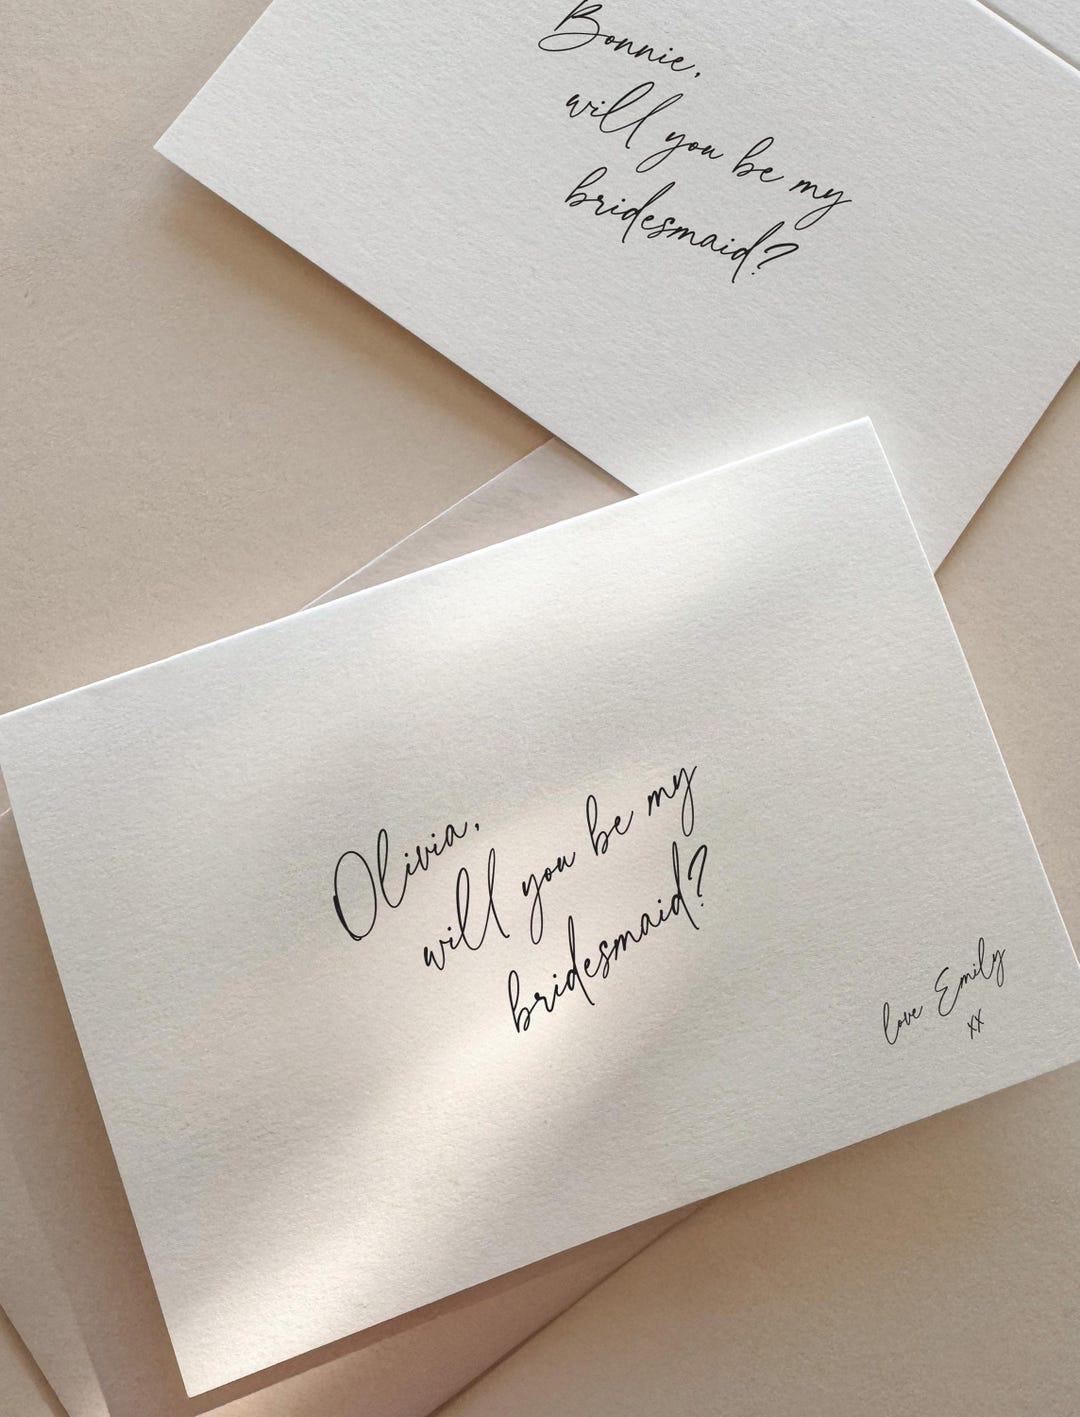 Bonnie,
will you be my
bridesmaid?
Olivia,
will you be my
bridesmaid?
love Emily
xx